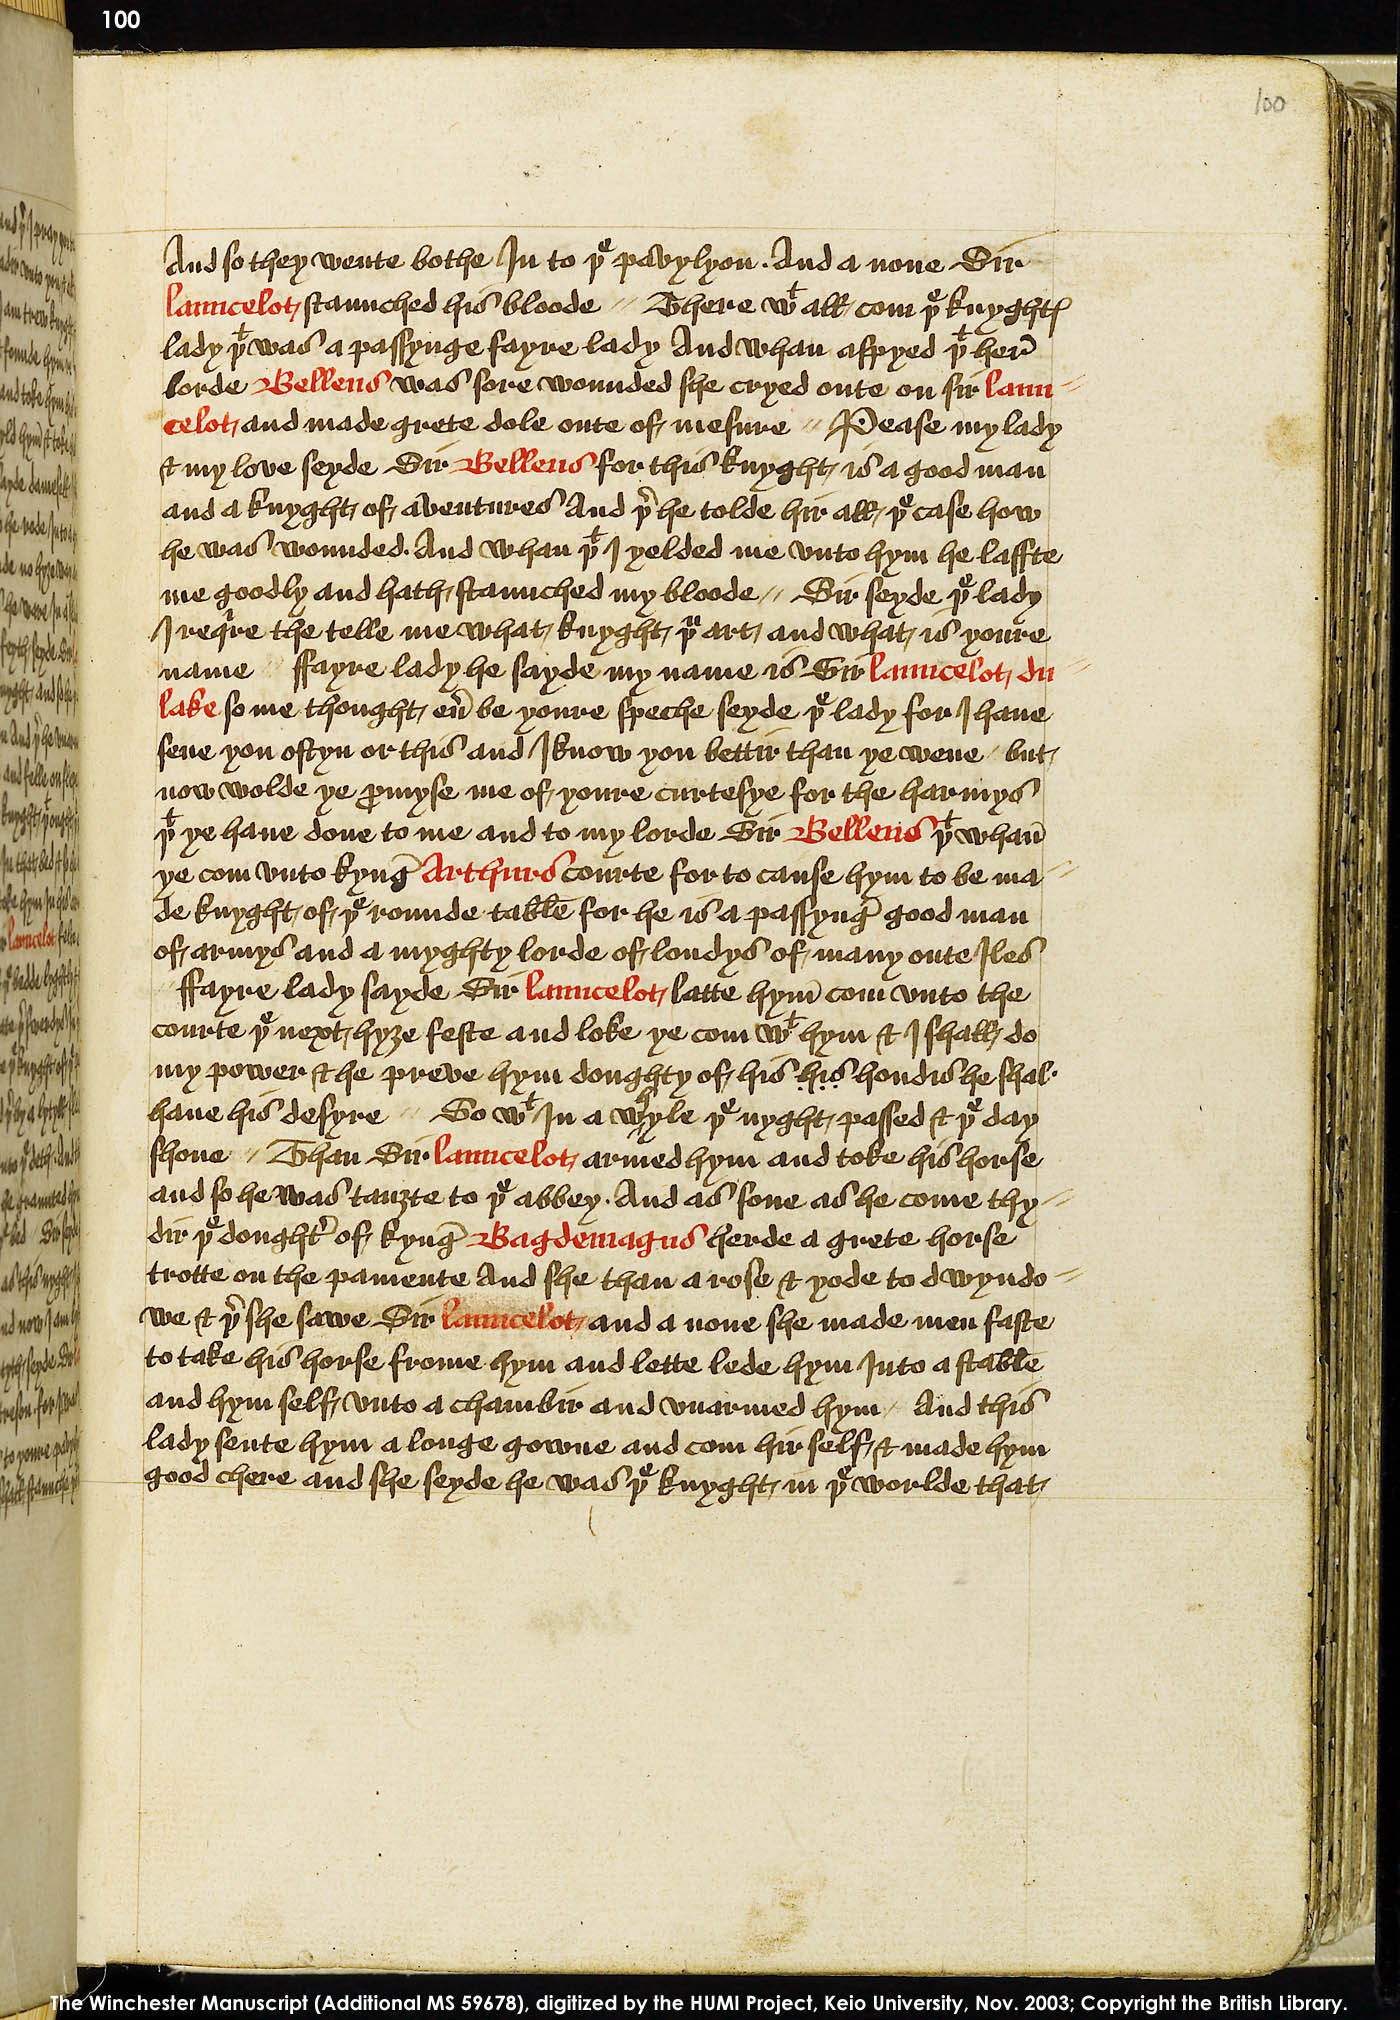 100
100
And so they wente bothe In to þe pavylyon. And a none Sir
launcelot staunched his bloode // There wt all com þe knyghtes
lady þt was a passynge fayre lady And whan aspyed þt her
lorde Belleus was sore wounded she cryed oute on sir laun=
celot and made grete dole oute of mesure // Pease my lady
& my love seyde Sir Belleus for this knyght is a good man
and a knyght of aventures And þer he tolde hir all þe case how
he was wounded. And whan þt I yelded me vnto hym he laffte
me goodly and hath staunched my bloode // Sir seyde þe lady
I reqre the telle me what knyght þu art and what is youre
name // ffayre lady he sayde my name is Sir launcelot du =
lake so me thought eu̅ be youre speche seyde þe lady for I haue
sene you oftyn or this and I know you bettir than ye wene // but
now wolde ye ꝓmyse me of youre curtesye for the harmys
þt ye haue done to me and to my lorde Sir Belleus þt whan̅
ye com vnto kyng̅ Arthurs courte for to cause hym to be ma=
de knyght of þe rounde table for he is a passyng̅ good man
of armys and a myghty lorde of londys of many oute Iles
// ffayre lady sayde Sir launcelot latte hym̅ com vnto the
courte þe next hyȝe feste and loke ye com wt hym & I shall do
my power & he preve hym doughty of his hiṣ hondis he shal
haue his desyre // So wt In a whyle þe nyght passed & þe day
shone // Than Sir launcelot armed hym and toke his horse
and so he was tauȝte to þe abbey. And as sone as he come thy=
dir þe doughtr of kyng̅ Bagdemagus herde a grete horse
trotte on the pamente And she than a rose & yode to d wyndo=
we & þer she sawe Sir launcelot and a none she made men faste
to take his horse frome hym and lette lede hym In to a stable
and hym self vnto a chambir and vnarmed hym // And this
lady sente hym a longe gowne and com hir self & made hym
good chere and she seyde he was þe knyght in þe worlde that
The Winchester Manuscript (Additional MS 59678), digitized by the HUMI Project, Keio University, Nov. 2003; Copyright the British Library.